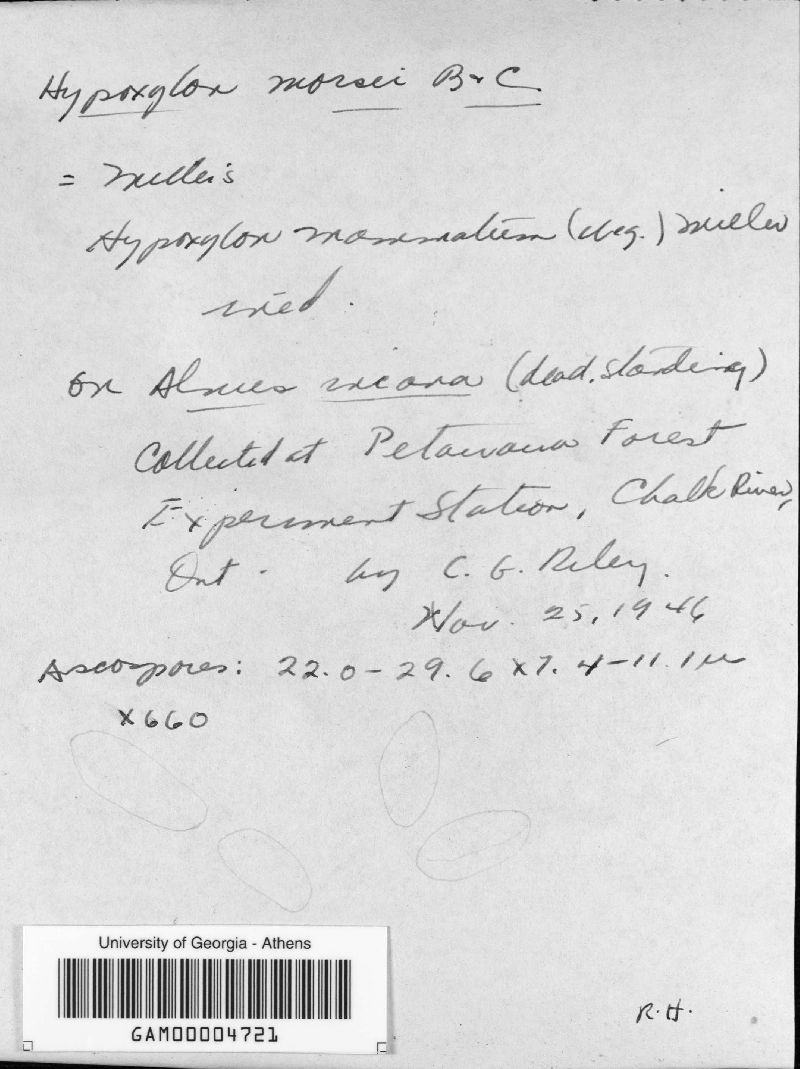 Hypoxylon morsei B & C.
= Miller's
Hypoxylon mammatum (Weg.) Miller
ined.
on Alnus incana (dead, standing)
Collected at Petawawa Forest
Experiment Station, Chalk River,
Ont. by C. G. Riley.
Nov. 25, 1946
Ascospores: 22.0-29.6 x 7.4-11.1µ
x660
University of Georgia - Athens
GAM00004721
R.H.